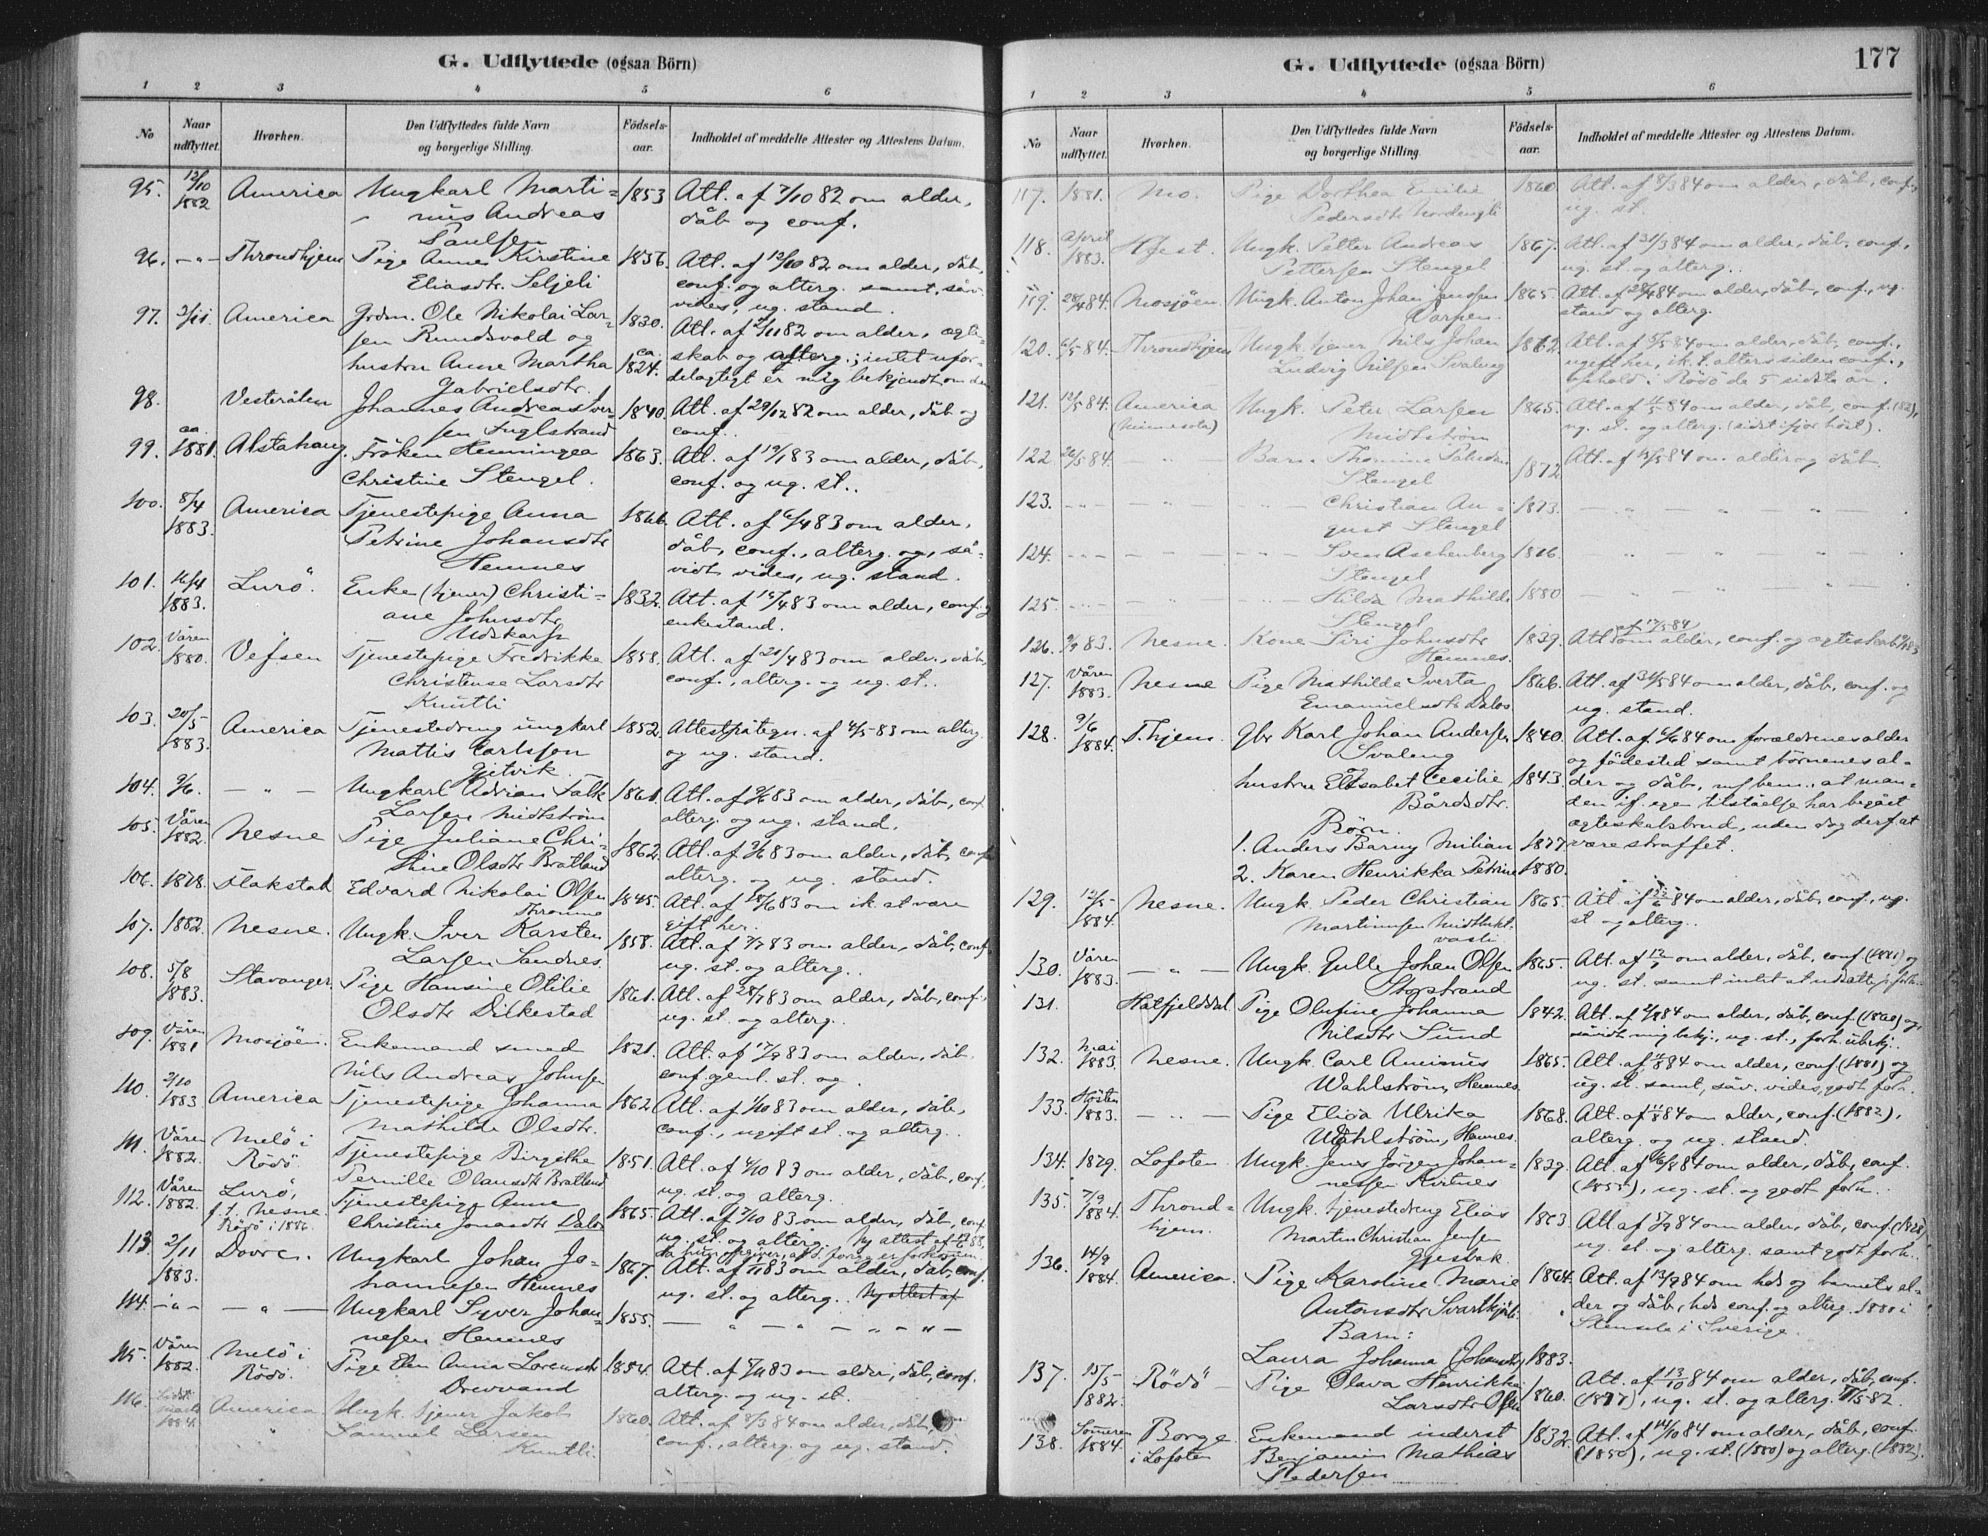 G. Udflyttede (ogsaa Börn)
1 2 3 4 5 6
No
Naar udflyttet.
Hvorhen.
Den Udflyttedes fulde Navn og borgerlige Stilling.
Födsels-aar.
Indholdet af meddelte Attester og Attestens Datum.
95. 12/10 1882 America Ungkarl Marti- 1853 Att. af 7/10 82 om alder,
nius Andreas dåb og conf.
Paulsen
96. -"- Throndhjem Pige Anne Kirstine 1836. Att. af 12/10 82 om alder, dåb,
Eliasdtr. Seljeli conf. og alterg. samt, såv.
vides, ug. stand.
97. America Grdm. Ole Nikolai Lar- 1830. Att. af 2/11 82 om alder, ægte-
sen Rundsvold og skab og alterg.; intet ufor-
hustru Anne Martha ca. 1824. delagtigt er mig bekjendt om dem
Gabrielsdtr.
98. Vesterålen Johannes Andreas Iver- 1840. Att. af 29/12 82 om alder, dåb og
sen Fuglstrand conf..
99. ca. 1881. Alstahaug. Fröken Henningea 1863. Att. af 19/1 83 om alder, dåb,
Christine Stengel. conf. og ug. st..
100. 8/4 1883. America Tjenestepige Anna 1866. Att. af 6/4 83 om alder,
Petrine Johansdtr dåb, conf., alterg. og, så-
Hemnes vidt vides, ug. stand.
101. 16/4 1883. Lurö Enke (tjener) Christi- 1832. Att. af 15/4 83 om alder, conf. og
ane Johnsdtr enkestand.
Udskarps
102. Våren 1880. Vefsen Tjenestepige Fredrikke 1858. Att. af 20/4 83 om alder, dåb,
Christense Larsdtr conf., alterg. og ug. st..
Knutli
103. 20/5 1883. America Tjenestedreng ungkarl 1852. Attestpåtegn. af 4/5-83 om alterg
Mattis Carlsson og ug. stand.
Gjetvik.
104. 9/6. - " - Ungkarl Adrian Falk 1861. Att. af 9/6 83 om alder, dåb, conf.
Larsen Midtström alterg. og ug. stand.
105. Våren 1882. Nesne Pige Juliane Chri- 1862. Att. af 9/6 83 om alder, dåb, conf.
stine Olsdtr Bratland alterg. og ug. stand.
106. 1878. Flakstad Edvard Nikolai Olsen 1845. Att. af 18/6 83 om ik. at være
Thromme gift her.
107. 1882. Nesne. Ungk. Iver Karsten 1858. Att. af 7/7 83 om alder, dåb, conf.
Larsen Sandnes. ug. st. og alterg..
108. 5/8 1883. Stavanger. Pige Hansine Otilie 1861. Att. af 28/7 83 om alder, dåb, conf.,
Olsdtr Dilkestad ug. st. og alterg..
109. Våren 1881 Mosjöen. Enkemand smed 1821. Att. af 17/9 83 om alder, dåb
Nils Andreas Johnsen
110. 2/10 1883 America Tjenestepige Johanna 1862. Att. af 1/10 83 om alder, dåb,
Mathilde Olsdtr. conf., ugift st. og alterg..
111. Våren 1882. Melö i Rödö. Tjenestepige Birgithe 1851. Att. af 4/10 83 om alder, dåb, conf.,
Pernille Olausdtr Bratland ug. st. og alterg.
112. Våren 1882. Lurö, f. t. Nesne Rödö i 1886 Tjenestepige Anne 1865. Att. af 7/10 83 om alder, dåb, conf.
Christine Jonasdtr Dalos ug. st. og alterg. Ny attest af
113. 2/11 1883. Dovre. Ungkarl Johan Jo- 1867. Att. af 1/11 83 om alder, dåb, conf.
hannesen Hemnes ug. st. og alterg.. Ny attest af
114. -"- - " - Ungkarl Syver Johan- 1855. - " - " - " - " -
nesen Hemnes
115. Våren 1882. Melö i Rödö. Pige Elen Anna Lorensdtr 1854. Att. af 5/11 83 om alder, dåb, conf.
Drevvand alterg. og ug. st.
116. Sidst marts 1884. America Ungk. tjener Jakob 1860. Att. af 8/3 84 om alder, dåb,
Samuel Larsen conf., alterg. og ug. stand.
Knutli.
G. Udflyttede (ogsaa Börn)
177
1 2 3 4 5 6
No
Naar udflyttet.
Hvorhen.
Den Udflyttedes fulde Navn og borgerlige Stilling.
Födsels-aar.
Indholdet af meddelte Attester og Attestens Datum.
117. 1881. Mo. Pige Dorthea Emilie 1860. Att. af 8/3 84 om alder, dåb, conf.,
Pedersdtr ug. st.
118. April 1883. Ungk. Petter Andreas 1867. Att. af 31/3 84 om alder, dåb, conf.,
Pettersen Stengel ug. st. og alterg..
119. 28/4 84. Mosjöen. Ungk. Anton Johan Jensen 1865. Att. af 28/4 84 om alder, dåb, conf., ug.
stand og alterg.
120. 6/5 84. Throndhjem Ungk. tjener Nils Johan 1862. Att. af 5/5 84 om alder, dåb, conf.,
Ludvig Nilsen Svaleng ugift her, ik. t. alters siden conf.,
ophold i Rödö de 5 sidste år.
121. 12/5 84. America (Minnesota) Ungk. Peter Larsen 1865. Att. af 11/5 84 om alder, dåb, conf. (82),
Midtström ug. st. og alterg. (sidst ifjor höst).
122. 26/5 84. - " - Barn Thomine 1872 Att. af 5 84 om alder og dåb
Stengel
123. - " - - " - - " - Christian Au- 1873. - " - " - " -
gust Stengel
124. - " - - " - - " - Sven Aschenberg 1876 - " - " -
Stengel
125. - " - - " - - " - Hilda Mathilde 1880 - " - " -
Stengel
126. 83. Nesne. Kone Siri Johnsdtr 1839. Att. af 17/5 84 om alder, conf. og ægteskab
Hemnes.
127. Våren 1883. Nesne Pige Mathilde Iverta 1866. Att. af 31/5 84 om alder, dåb, conf. og
Emanuelsdtr Dalos ug. stand.
128. 9/6 1884. T.hjem. Gbr Karl Johan Andersen 1840. Att. af 6/6 84 om forældrenes alder
Svaleng og födested samt börnenes al-
hustru Elisabet Cecilie 1843. der og dåb, m/ bem., at man-
Bårdsdtr. den if. egen tilståelse har begået
Börn. ægteskabsbrud, uden dog derf. at
1. Anders Barny Milian 1877 være straffet.
2. Karen Henrikka Petrine 1880.
129. 12/5 1884. Nesne. Ungk. Peder Christian 1865. Att. af 84 om alder, dåb, conf., ug.
Martinusen st. og alterg..
130. Våren 1883. - " - Ungk. Gulle Johan Olsen 1865. Att. af om alder, dåb, conf. (1881) og
ug. st. samt intet at udsætte p. forh.
131. Hatfjelddal Pige Olufine Johanna 1842. Att. af 84 om alder, dåb, conf. (1860) og,
Nilsdtr Sund såvidt mig bekj., ug. st., forh. ubekj..
132. Mai 1883. Nesne. Ungk. Carl Aminus 1865. Att. af 11/8 84 om alder, conf. (1881) og
Wahlström, Hemnes. ug. st. samt, såv. vides, godt forh.
133. Hösten 1883. - " - Pige Elisa Ulrika 1868. Att. af 11/8 84 om alder, conf. (1882),
Wahlström, Hemnes. alterg. og ug. stand.
134. 1879. Lofoten. Ungk. Jens Jörgen Johan- 1839. Att. af 16/8 84 om alder, dåb, conf.
nesen (1855), ug. st. og godt forh..
135. 7/9 1884. Thrond-hjem. Ungk. tjenestedreng Elias 1863. Att. af 5/9 84 om alder, dåb, conf. (1878)
Martin Christian Jensen ug. st. og alterg. samt godt forh..
Gjesbak
136. 14/9 1884. America. Pige Karoline Marie 1864. Att. af 13/9 84 om hds og barnets al-
Antonsdtr der og dåb, hds conf. og alterg. 1880 i
Barn: Stensele i Sverige.
Laura Johanna Johansdtr 1883.
137. 15/5 1882. Rödö Pige Olava Henrikke 1860. Att. af 13/10 84 om alder, dåb, conf.
Larsdtr (1877), ug. st. og alterg. 82.
138. Sommeren 1884. Borge i Lofoten Enkemand inderst 1832. Att. af 14/10 84 om alder, dåb, conf.
Benjamin Mathias (1850), ug. st. (1880) og alterg. (1882).
Pedersen